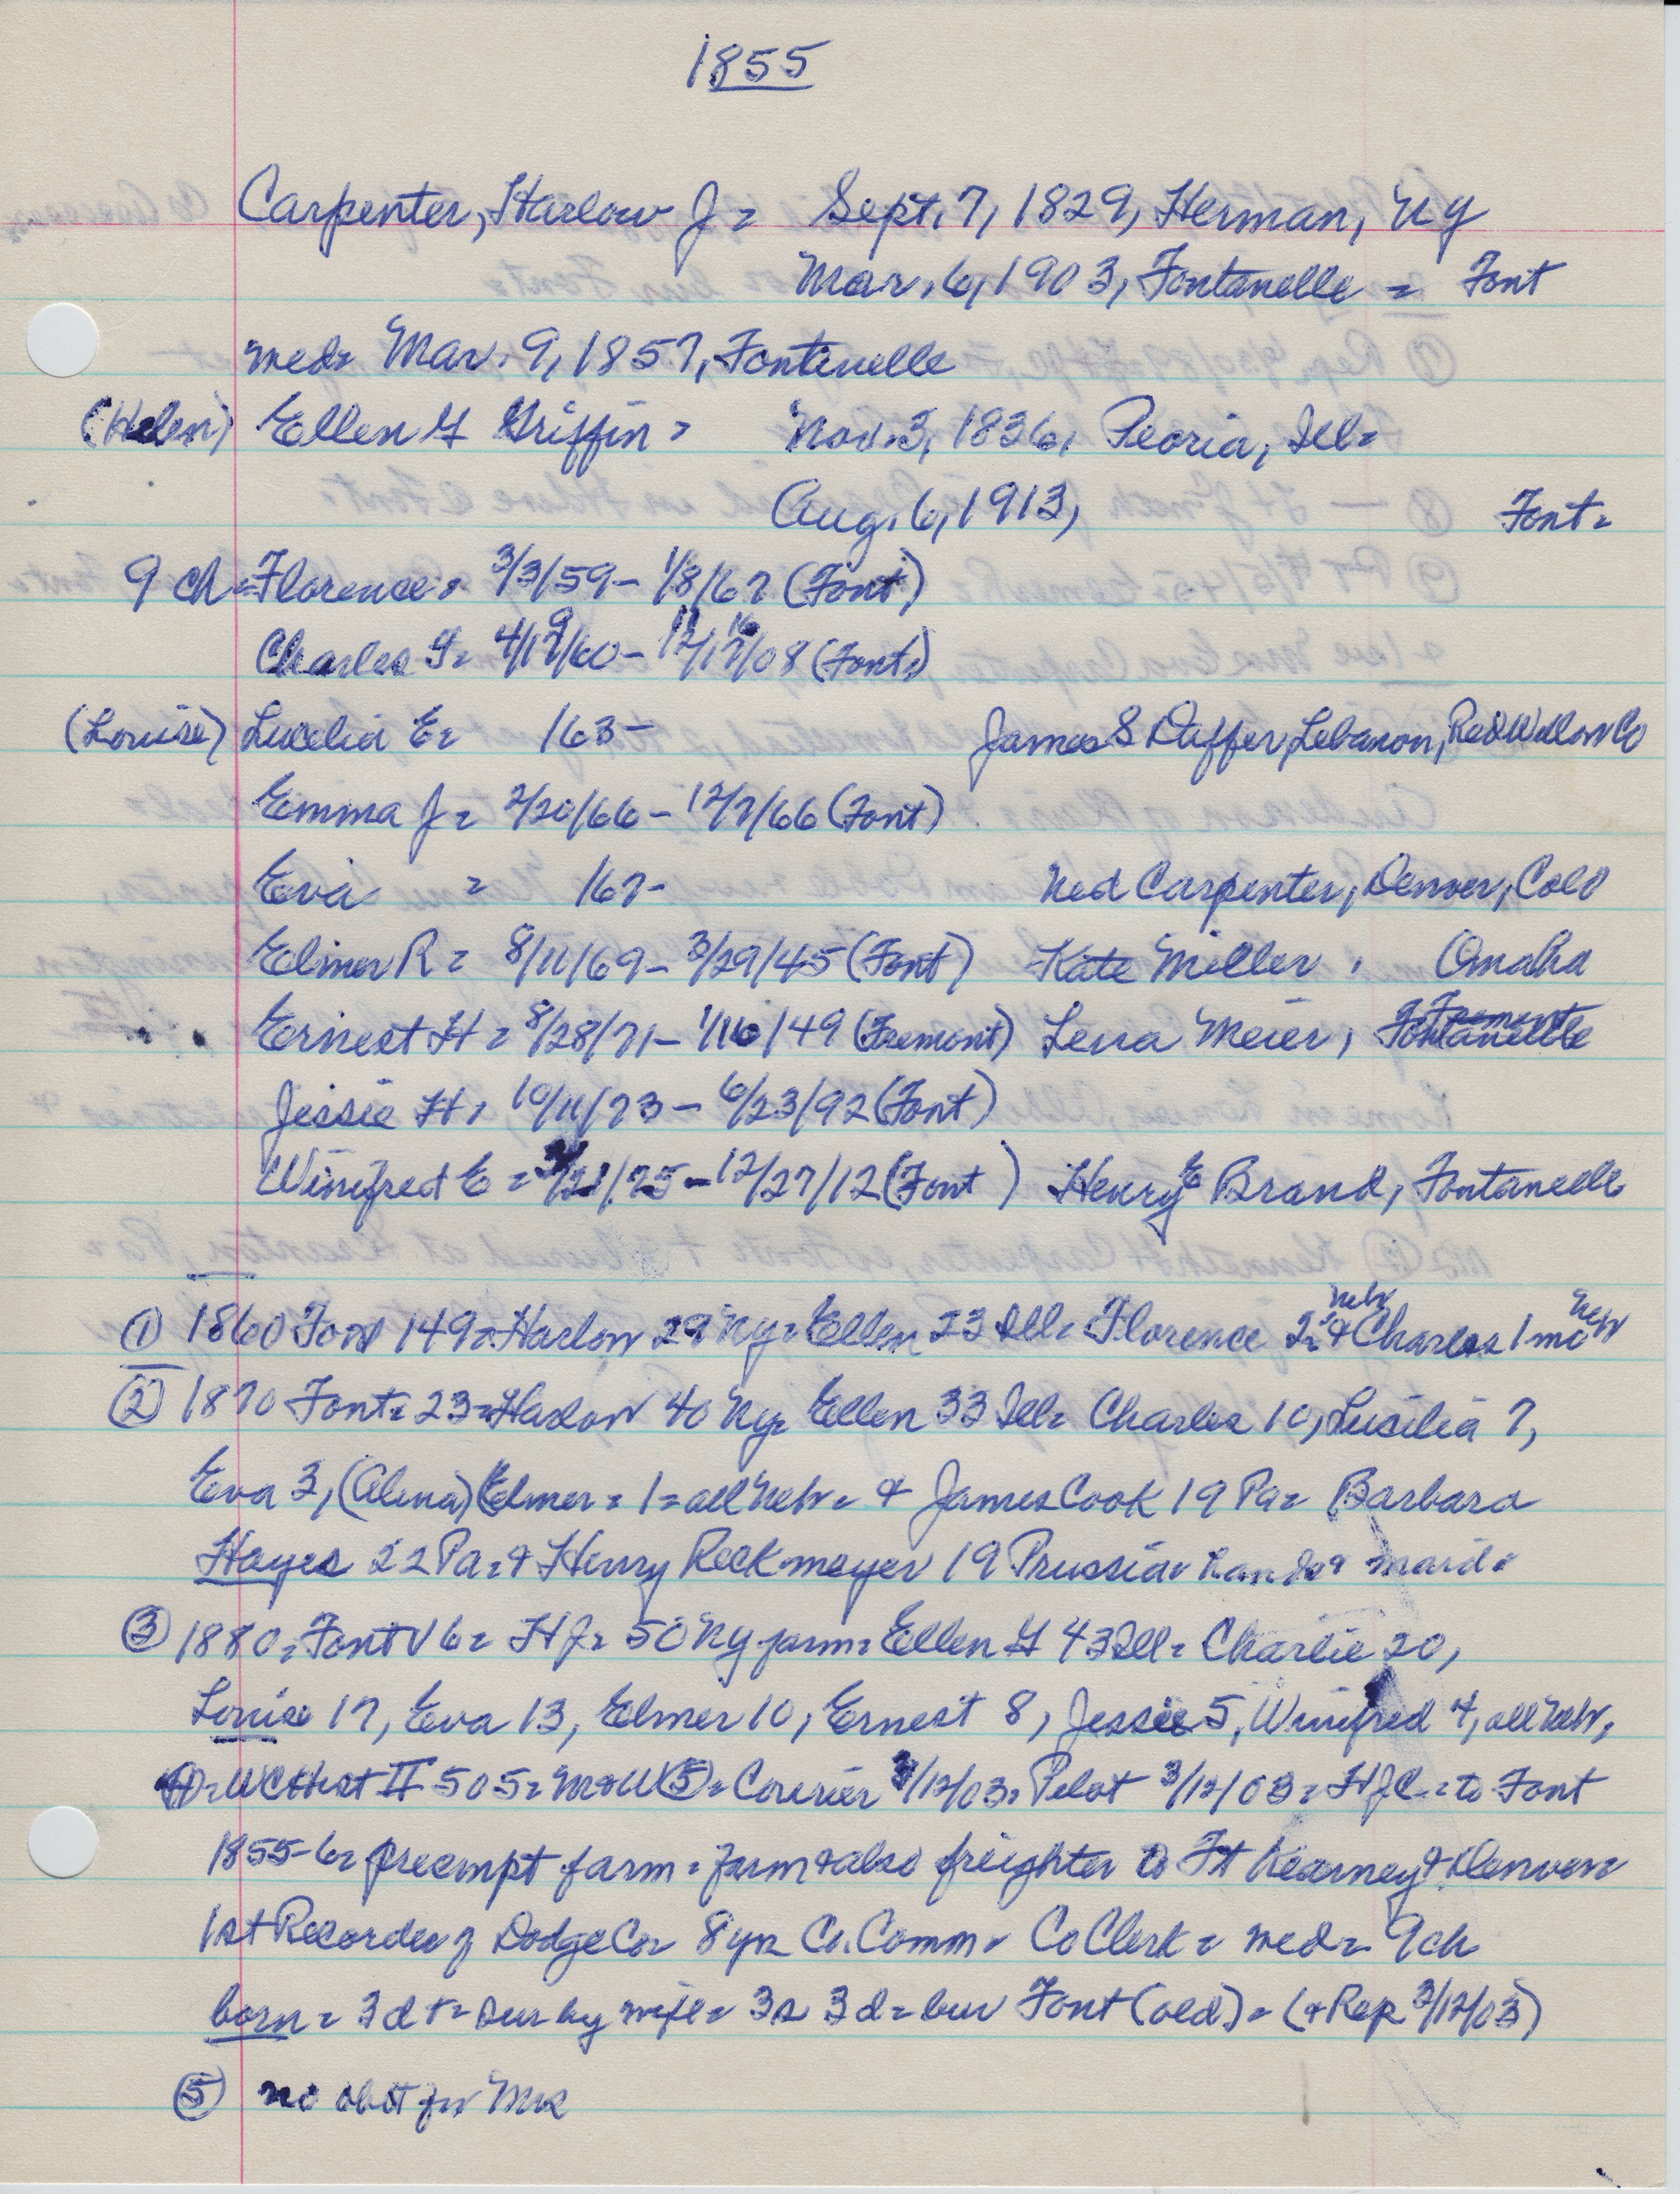 1855
Carpenter, Harlow J = Sept. 7, 1829, Herman, NY
Mar. 6, 1903, Fontanelle = Font
med= Mar. 9, 1857, Fontenelle
(Helen) Ellen G Griffin = Nov. 3, 1836, Peoria, Ill=
Aug. 6, 1913, Font=
9 ch = Florence = 3/3/59 - 1/8/67 (Font)
Charles = 4/19/60 - /16/08 (Font=)
(Louise) Lucelia E= /63- James S Daffer, Lebanon, Red Willow Co
Emma J = 2/20/66 - 12/7/66 (Font)
Eva = /67- Ned Carpenter, Denver, Colo
Elmer R = 8/11/69 - 3/29/45 (Font) Kate Miller, Omaha
Ernest H = 8/28/71 - 1/16/49 (Fremont) Lena Meier, Fontanelle Fremont
Jessie H, 10/11/73 - 6/23/92 (Font)
Winifred E = /21/75 - 12/27/12 (Font) Henry E Brand, Fontanelle
① 1860 Font 149= Harlow 29 NY= Ellen 23 Ill= Florence 2 Neb & Charles 1 mo Neb
② 1870 Font= 23= Harlow 40 NY= Ellen 33 Ill= Charles 10, Lucilia 7,
Eva 3, (Alena) Elmer = 1 = all Neb = & James Cook 19 Pa= Barbara
Hayes 22 Pa= & Henry Reekmeyer 19 Prussia= hands & maid=
③ 1880= Font V 6= HJ= 50 NY farm= Ellen G 43 Ill= Charlie 20,
Louise 17, Eva 13, Elmer 10, Ernest 8, Jessie 5, Winifred 4, all Neb,
④= WCHist II 505= M&W ⑤= Courier 3/12/03= Pilot 3/12/03= HJC= to Font
1855-6= preempt farm= farm & also freighter to Ft Kearney & Denver=
1st Recorder of Dodge Co= 8 yrs Co. Comm= Co Clerk= med= 9 ch
born= 3 d + = sur by wife= 3s 3d= bur Font (old)= (& Rep 3/12/03)
⑤ no obit for Mrs